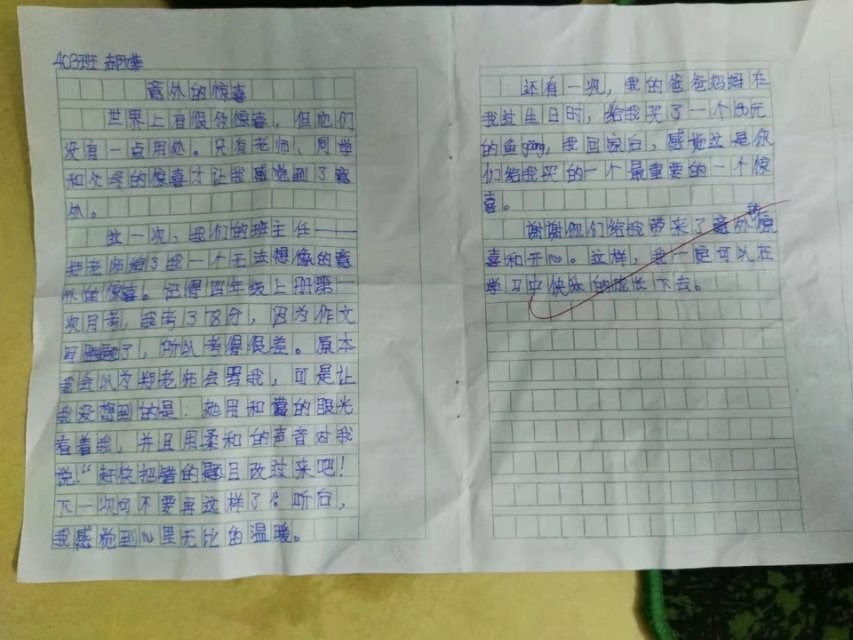 403班
意外的惊喜
世界上有很多惊喜,但他们
没有一点用处。只有老师、同学
和父母的惊喜才让我感觉到了意
外。
有一次,我们的班主任——
郑老师给了我一个无法想像的意
外的惊喜。记得四年级上册第一
次月考,我考38分,因为作文
写了,所以考得很差。原本
我会以为郑老师会骂我,可是让
我没想到的是:她用和蔼的眼光
看着我,并且用柔和的声音对我
说:“赶快把错的题目改过来吧!
下一次可不要再这样了。”听后,
我感觉到心里无比的温暖。
还有一次,我的爸爸妈妈在
我过生日时,给我买了一个元
的鱼gāng,我回家后,感觉这是你
们给我买的一个最重要的一个惊
喜。
谢谢他们给我带来了意外惊
喜和开心。这样,我一定可以在
学习中快乐的成长下去。